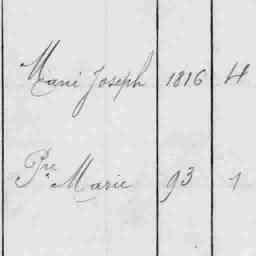 Mani Joseph 1816 4
Pre Marie 93 1